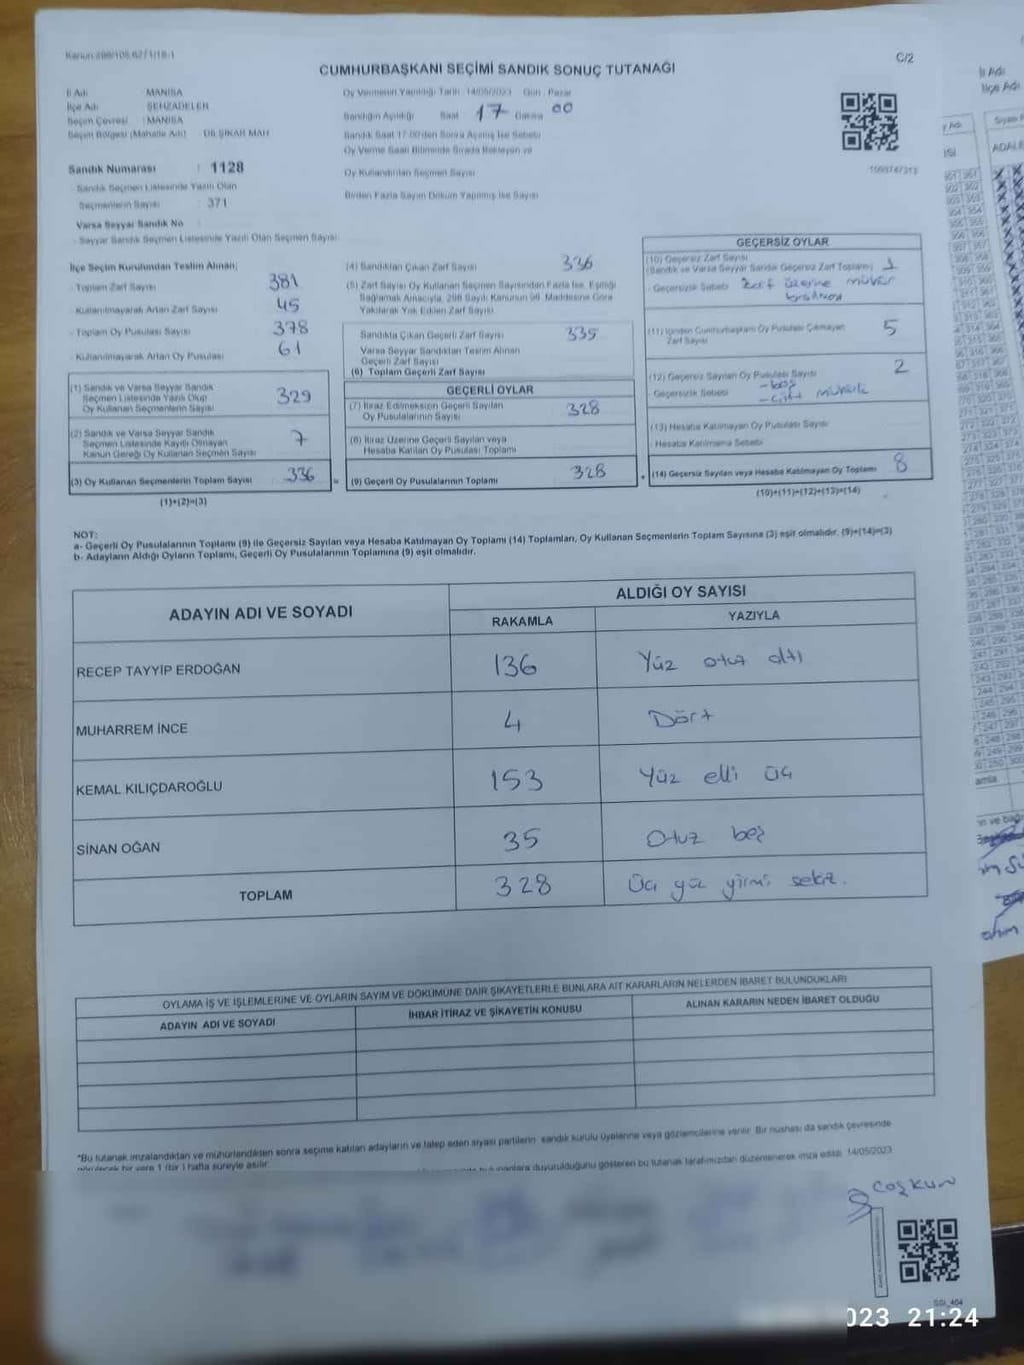 Kanun:298/105,62/1/18-1
C/2
CUMHURBAŞKANI SEÇİMİ SANDIK SONUÇ TUTANAĞI
İl Adı : MANİSA
İlçe Adı : ŞEHZADELER
Seçim Çevresi : MANİSA
Seçim Bölgesi (Mahalle Adı) : DİLŞİKAR MAH
Sandık Numarası : 1128
Sandık Seçmen Listesinde Yazılı Olan
Seçmenlerin Sayısı : 371
Varsa Seyyar Sandık No
Seyyar Sandık Seçmen Listesinde Yazılı Olan Seçmen Sayısı:
Oy Vermenin Yapıldığı Tarih: 14/05/2023 Gün: Pazar
Sandığın Açıldığı Saat 17 Dakika 00
Sandık Saat 17:00'den Sonra Açılmış İse Sebebi
Oy Verme Saati Bitiminde Sırada Bekleyen ve
Oy Kullandırılan Seçmen Sayısı
Birden Fazla Sayım Döküm Yapılmış İse Sayısı
İlçe Seçim Kurulundan Teslim Alınan;
- Toplam Zarf Sayısı 381
- Kullanılmayarak Artan Zarf Sayısı 45
- Toplam Oy Pusulası Sayısı 378
- Kullanılmayarak Artan Oy Pusulası 61
(1) Sandık ve Varsa Seyyar Sandık
Seçmen Listesinde Yazılı Olup
Oy Kullanan Seçmenlerin Sayısı 329
(2) Sandık ve Varsa Seyyar Sandık
Seçmen Listesinde Kayıtlı Olmayan
Kanun Gereği Oy Kullanan Seçmen Sayısı 7
(3) Oy Kullanan Seçmenlerin Toplam Sayısı 336
(1)+(2)=(3)
(4) Sandıktan Çıkan Zarf Sayısı 336
(5) Zarf Sayısı Oy Kullanan Seçmen Sayısından Fazla İse, Eşitliği
Sağlamak Amacıyla, 298 Sayılı Kanunun 98. Maddesine Göre
Yakılarak Yok Edilen Zarf Sayısı
Sandıkta Çıkan Geçerli Zarf Sayısı 335
Varsa Seyyar Sandıktan Teslim Alınan
Geçerli Zarf Sayısı
(6) Toplam Geçerli Zarf Sayısı
GEÇERLİ OYLAR
(7) İtiraz Edilmeksizin Geçerli Sayılan
Oy Pusulalarının Sayısı 328
(8) İtiraz Üzerine Geçerli Sayılan veya
Hesaba Katılan Oy Pusulası Toplamı
(9) Geçerli Oy Pusulalarının Toplamı 328
GEÇERSİZ OYLAR
(10) Geçersiz Zarf Sayısı
(Sandık ve Varsa Seyyar Sandık Geçersiz Zarf Toplamı) 1
- Geçersizlik Sebebi Zarf üzerine mühür
(11) İçinden Cumhurbaşkanı Oy Pusulası Çıkmayan
Zarf Sayısı 5
(12) Geçersiz Sayılan Oy Pusulası Sayısı 2
- Geçersizlik Sebebi - boş
- çift mühürlü
(13) Hesaba Katılmayan Oy Pusulası Sayısı
- Hesaba Katılmama Sebebi
(14) Geçersiz Sayılan veya Hesaba Katılmayan Oy Toplamı 8
(10)+(11)+(12)+(13)=(14)
NOT:
a- Geçerli Oy Pusulalarının Toplamı (9) ile Geçersiz Sayılan veya Hesaba Katılmayan Oy Toplamı (14) Toplamları, Oy Kullanan Seçmenlerin Toplam Sayısına (3) eşit olmalıdır. (9)+(14)=(3)
b- Adayların Aldığı Oyların Toplamı, Geçerli Oy Pusulalarının Toplamına (9) eşit olmalıdır.
ADAYIN ADI VE SOYADI
ALDIĞI OY SAYISI
RAKAMLA YAZIYLA
RECEP TAYYİP ERDOĞAN 136 Yüz otuz altı
MUHARREM İNCE 4 Dört
KEMAL KILIÇDAROĞLU 153 Yüz elli üç
SİNAN OĞAN 35 Otuz beş
TOPLAM 328 Üç yüz yirmi sekiz.
OYLAMA İŞ VE İŞLEMLERİNE VE OYLARIN SAYIM VE DÖKÜMÜNE DAİR ŞİKAYETLERLE BUNLARA AİT KARARLARIN NELERDEN İBARET BULUNDUKLARI
ADAYIN ADI VE SOYADI İHBAR İTİRAZ VE ŞİKAYETİN KONUSU ALINAN KARARIN NEDEN İBARET OLDUĞU
*Bu tutanak imzalandıktan ve mühürlendikten sonra seçime katılan adayların ve talep eden siyasi partilerin sandık kurulu üyelerine veya gözlemcilerine verilir. Bir nüshası da sandık çevresinde
görülecek bir yere 1 (bir) hafta süreyle asılır.
duyurulduğunu gösteren bu tutanak tarafımızdan düzenlenerek imza edildi. 14/05/2023
COŞKUN
023 21:24
İl Adı
İlçe Adı